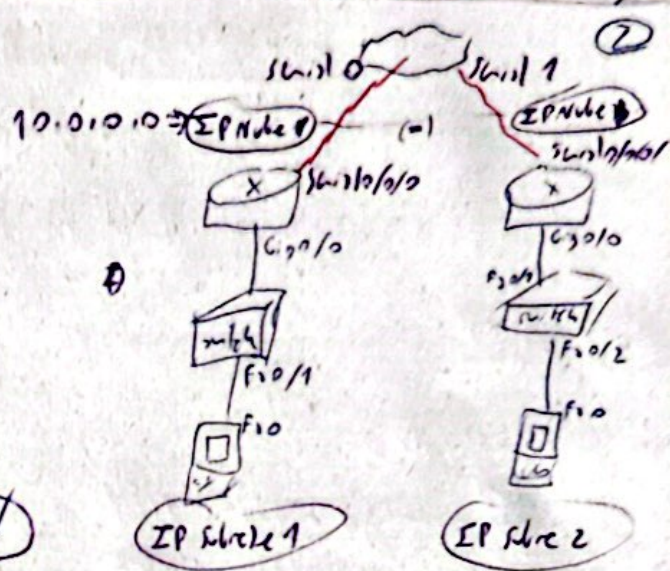 2
Serial 0 Serial 1
10.0.0.0 => IP Nube (=) IP Nube
Serial0/0/0 Serial0/0/0
Gig0/0 Gig0/0
Fa0/1
switch switch
Fa0/1 Fa0/2
Fa0 Fa0
IP Subrede 1 IP Subre 2